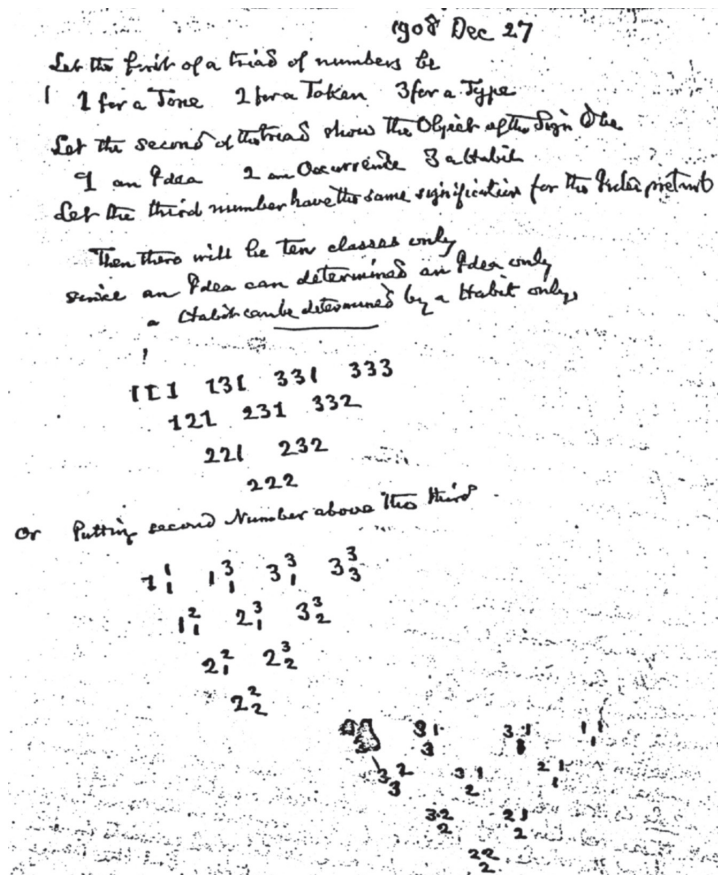 1908 Dec 27
Let the first of a triad of numbers be
1 1 for a Tone 2 for a Token 3 for a Type
Let the second of the triad show the Object of the Sign
1 an Idea 2 an Occurrence 3 a Habit
Let the third number have the same signification for the Interpretant
Then there will be ten classes only
since an Idea can determined an Idea only
a Habit can be determined by a Habit only
111 131 331 333
121 231 332
221 232
222
Or Putting second Number above the third
1 1 1 1 3 1 3 3 1 3 3 3
1 2 1 2 3 1 3 3 2
2 2 1 2 3 2
2 2 2
3 1 3 3 1 1 1 1
3 2 3 3 1 2 2 1 1
3 2 2 2 1 2
2 2 2